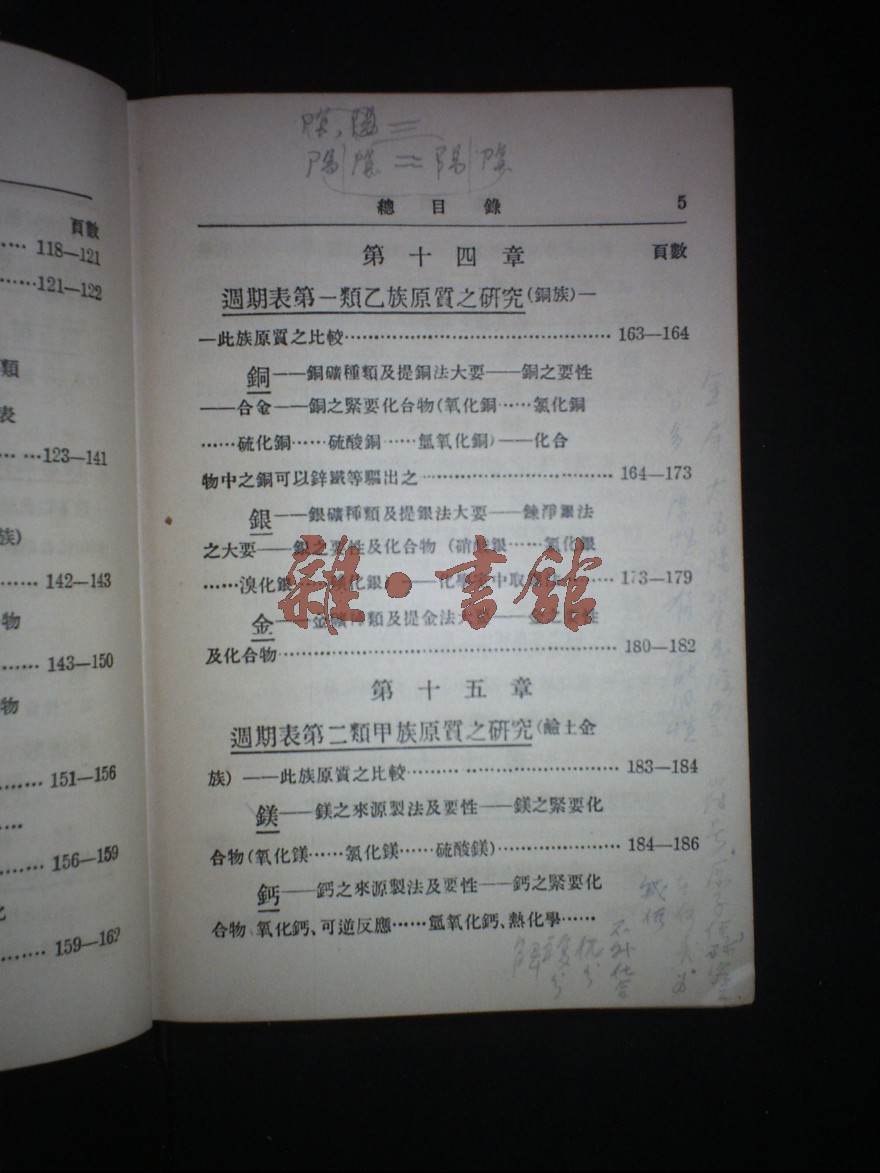 頁數
…… 118—121
……121—122
類
表
… …123—141
族)
…… 142—143
物
…… 143—150
物
…… 151—156
……
…… 156—159
化
…… 159—162
陽 陰 = 陽 陰
總目錄 5
第十四章 頁數
週期表第一類乙族原質之研究(銅族)—
—此族原質之比較…………………………………… 163—164
銅——銅礦種類及提銅法大要——銅之要性
——合金——銅之緊要化合物(氧化銅……氯化銅
……硫化銅……硫酸銅……氫氧化銅)——化合
物中之銅可以鋅鐵等驅出之………………………… 164—173
銀——銀礦種類及提銀法大要——鍊淨銀法
之大要——銀之要性及化合物(硝酸銀……氯化銀
……溴化銀……碘化銀)——化學 中取 ……… 173—179
金——金礦種類及提金法大要——金之要性
及化合物…………………………………………… 180—182
雜·書館
第十五章
週期表第二類甲族原質之研究(鹼土金
族)——此族原質之比較……… ………………… 183—184
鎂——鎂之來源製法及要性——鎂之緊要化
合物(氧化鎂……氯化鎂……硫酸鎂)……………… 184—186
鈣——鈣之來源製法及要性——鈣之緊要化
合物 氧化鈣、可逆反應……氫氧化鈣、熱化學……